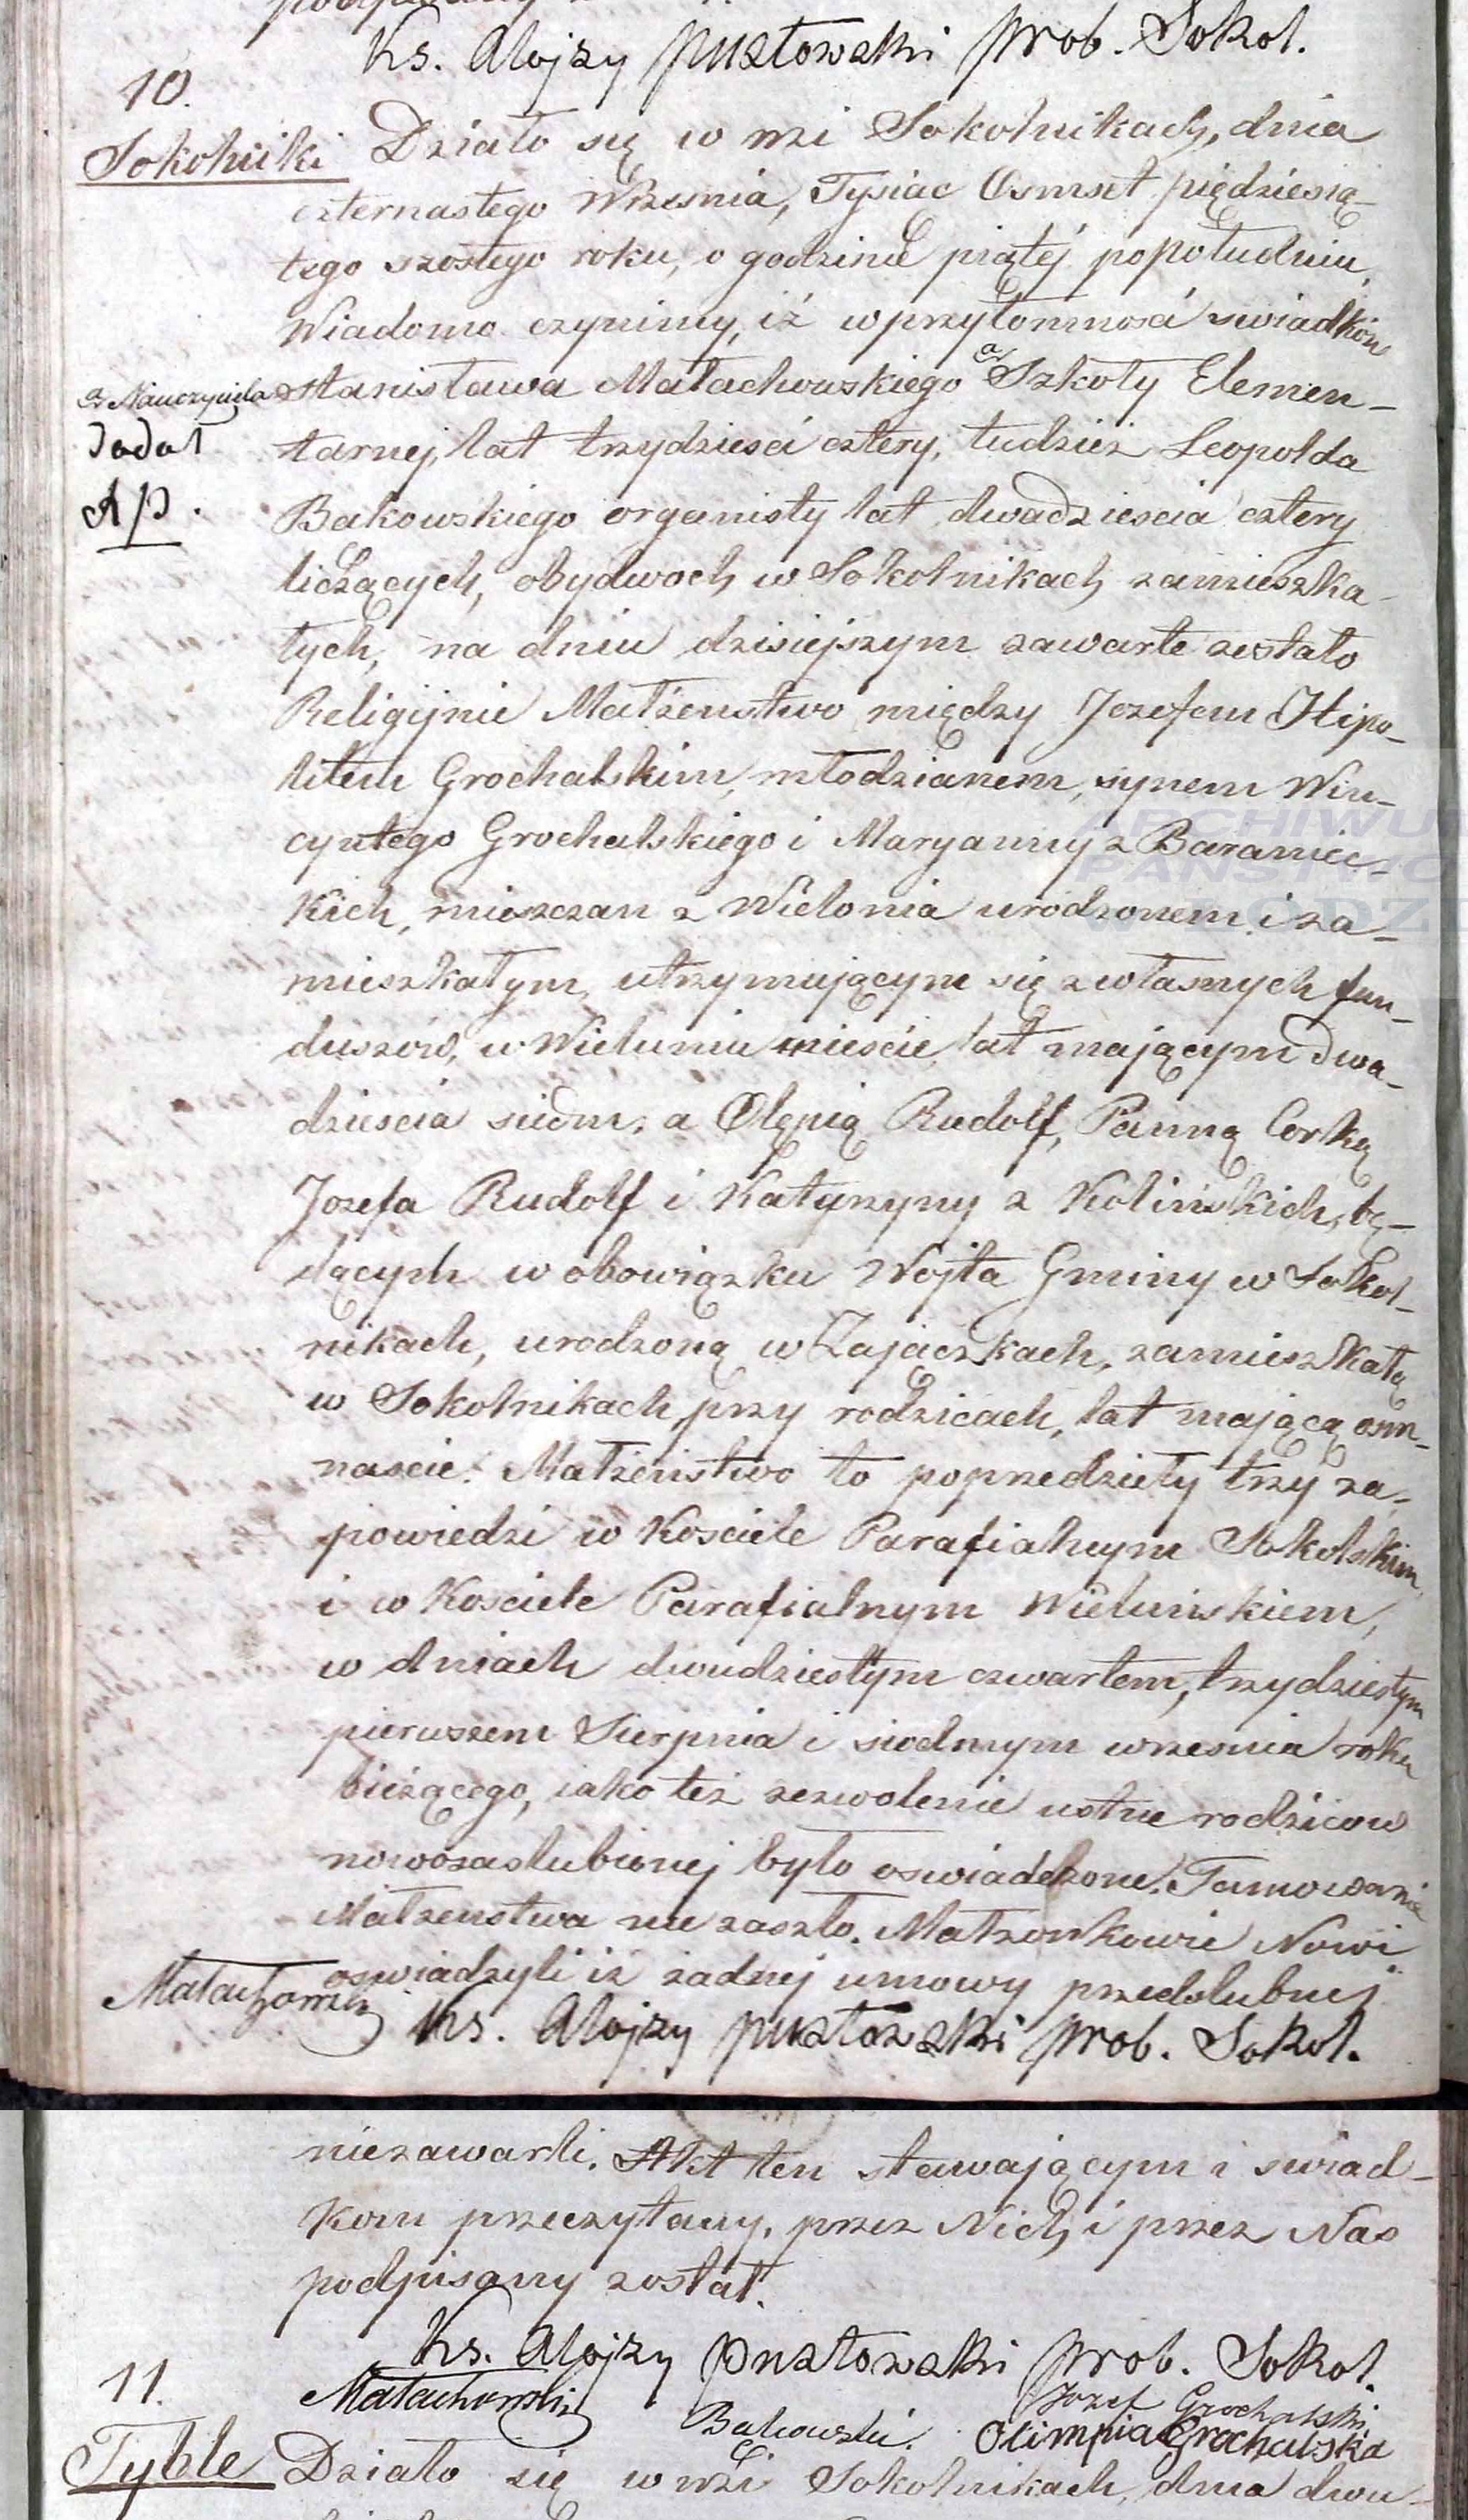 Ks. Alojzy Pusztowski prob. Sokol.
10.
Sokolniki
Działo się w wsi Sokolnikach, dnia
czternastego Września, Tysiac Osmset piędziesią-
tego szostego roku, o godzinie piątéj popołudniu,
Wiadomo czynimy, iż w przytomności swiadków
Stanisława Małachowskiego a/ Szkoły Elemen-
a/ Nauczyciela
dodał
AP.
tarnej, lat trzydzieści cztery, tudzież Leopolda
Bakowskiego organisty lat dwadzieścia cztery
liczących, obydwoch w Sokolnikach zamieszka-
łych, na dniu dzisiejszym zawarte zostało
Religijnie Małżeństwo między Jozefem Hipo-
litem Grochalskim, młodzianem, synem Win-
cyntego Grochalskiego i Maryanny z Baraniec-
kich, mieszczan z Wielonia urodzonem i za-
mieszkałym, utrzymującym się z własnych fun-
duszów, w Wieluniu mieście, lat mającym dwa-
dziescia siedm, a Olępią Rudolf, Panną Corką
Jozefa Rudolf i Katyrzyny z Kolińskich, bę-
dących w obowiązku Wojta Gminy w Sokol-
nikach, urodzoną w Zajączkach, zamieszkałą
w Sokolnikach przy rodzicach, lat mającą osm-
naście. Małżeństwo to poprzedziły trzy za-
powiedzi w Kosciele Parafialnym Sokolskim,
i w Kosciele Parafialnym Wieluńskiem,
w dniach dwudziestym czwartem, trzydziestym
pierwszem Sierpnia i siodmym wrzesnia roku
bieżącego, iako też zezwolenie ustne rodzicow
nowozaslubionej było oswiadczone. Tamowanie
Małżenstwa nie zaszło. Małzonkowie Nowi
oswiadzyli iż żadnej umowy przedslubnej
Małachowski
Ks. Alojzy Pusztowski prob. Sokol.
niezawarli. Akt ten stawającym i swiad-
kom przeczytany, przez Nich i przez Nas
podpisany został.
Ks. Alojzy Pusztowski prob. Sokol.
Małachowski
Bakowski.
Jozef Grochalski
Olimpia Grochalska
11.
Tyble
Działo się w wsi Sokolnikach, dnia dwu-